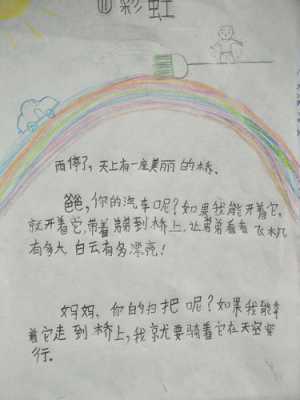 ⑪彩虹
雨停了,天上有一座美丽的桥。
爸爸,你的汽车呢?如果我能开着它,
就开着它,带着弟弟到桥上,让弟弟看看飞机
有多大 白云有多漂亮!
妈妈,你的扫把呢?如果我能拿
着它走到桥上,我就要骑着它在天空
行。